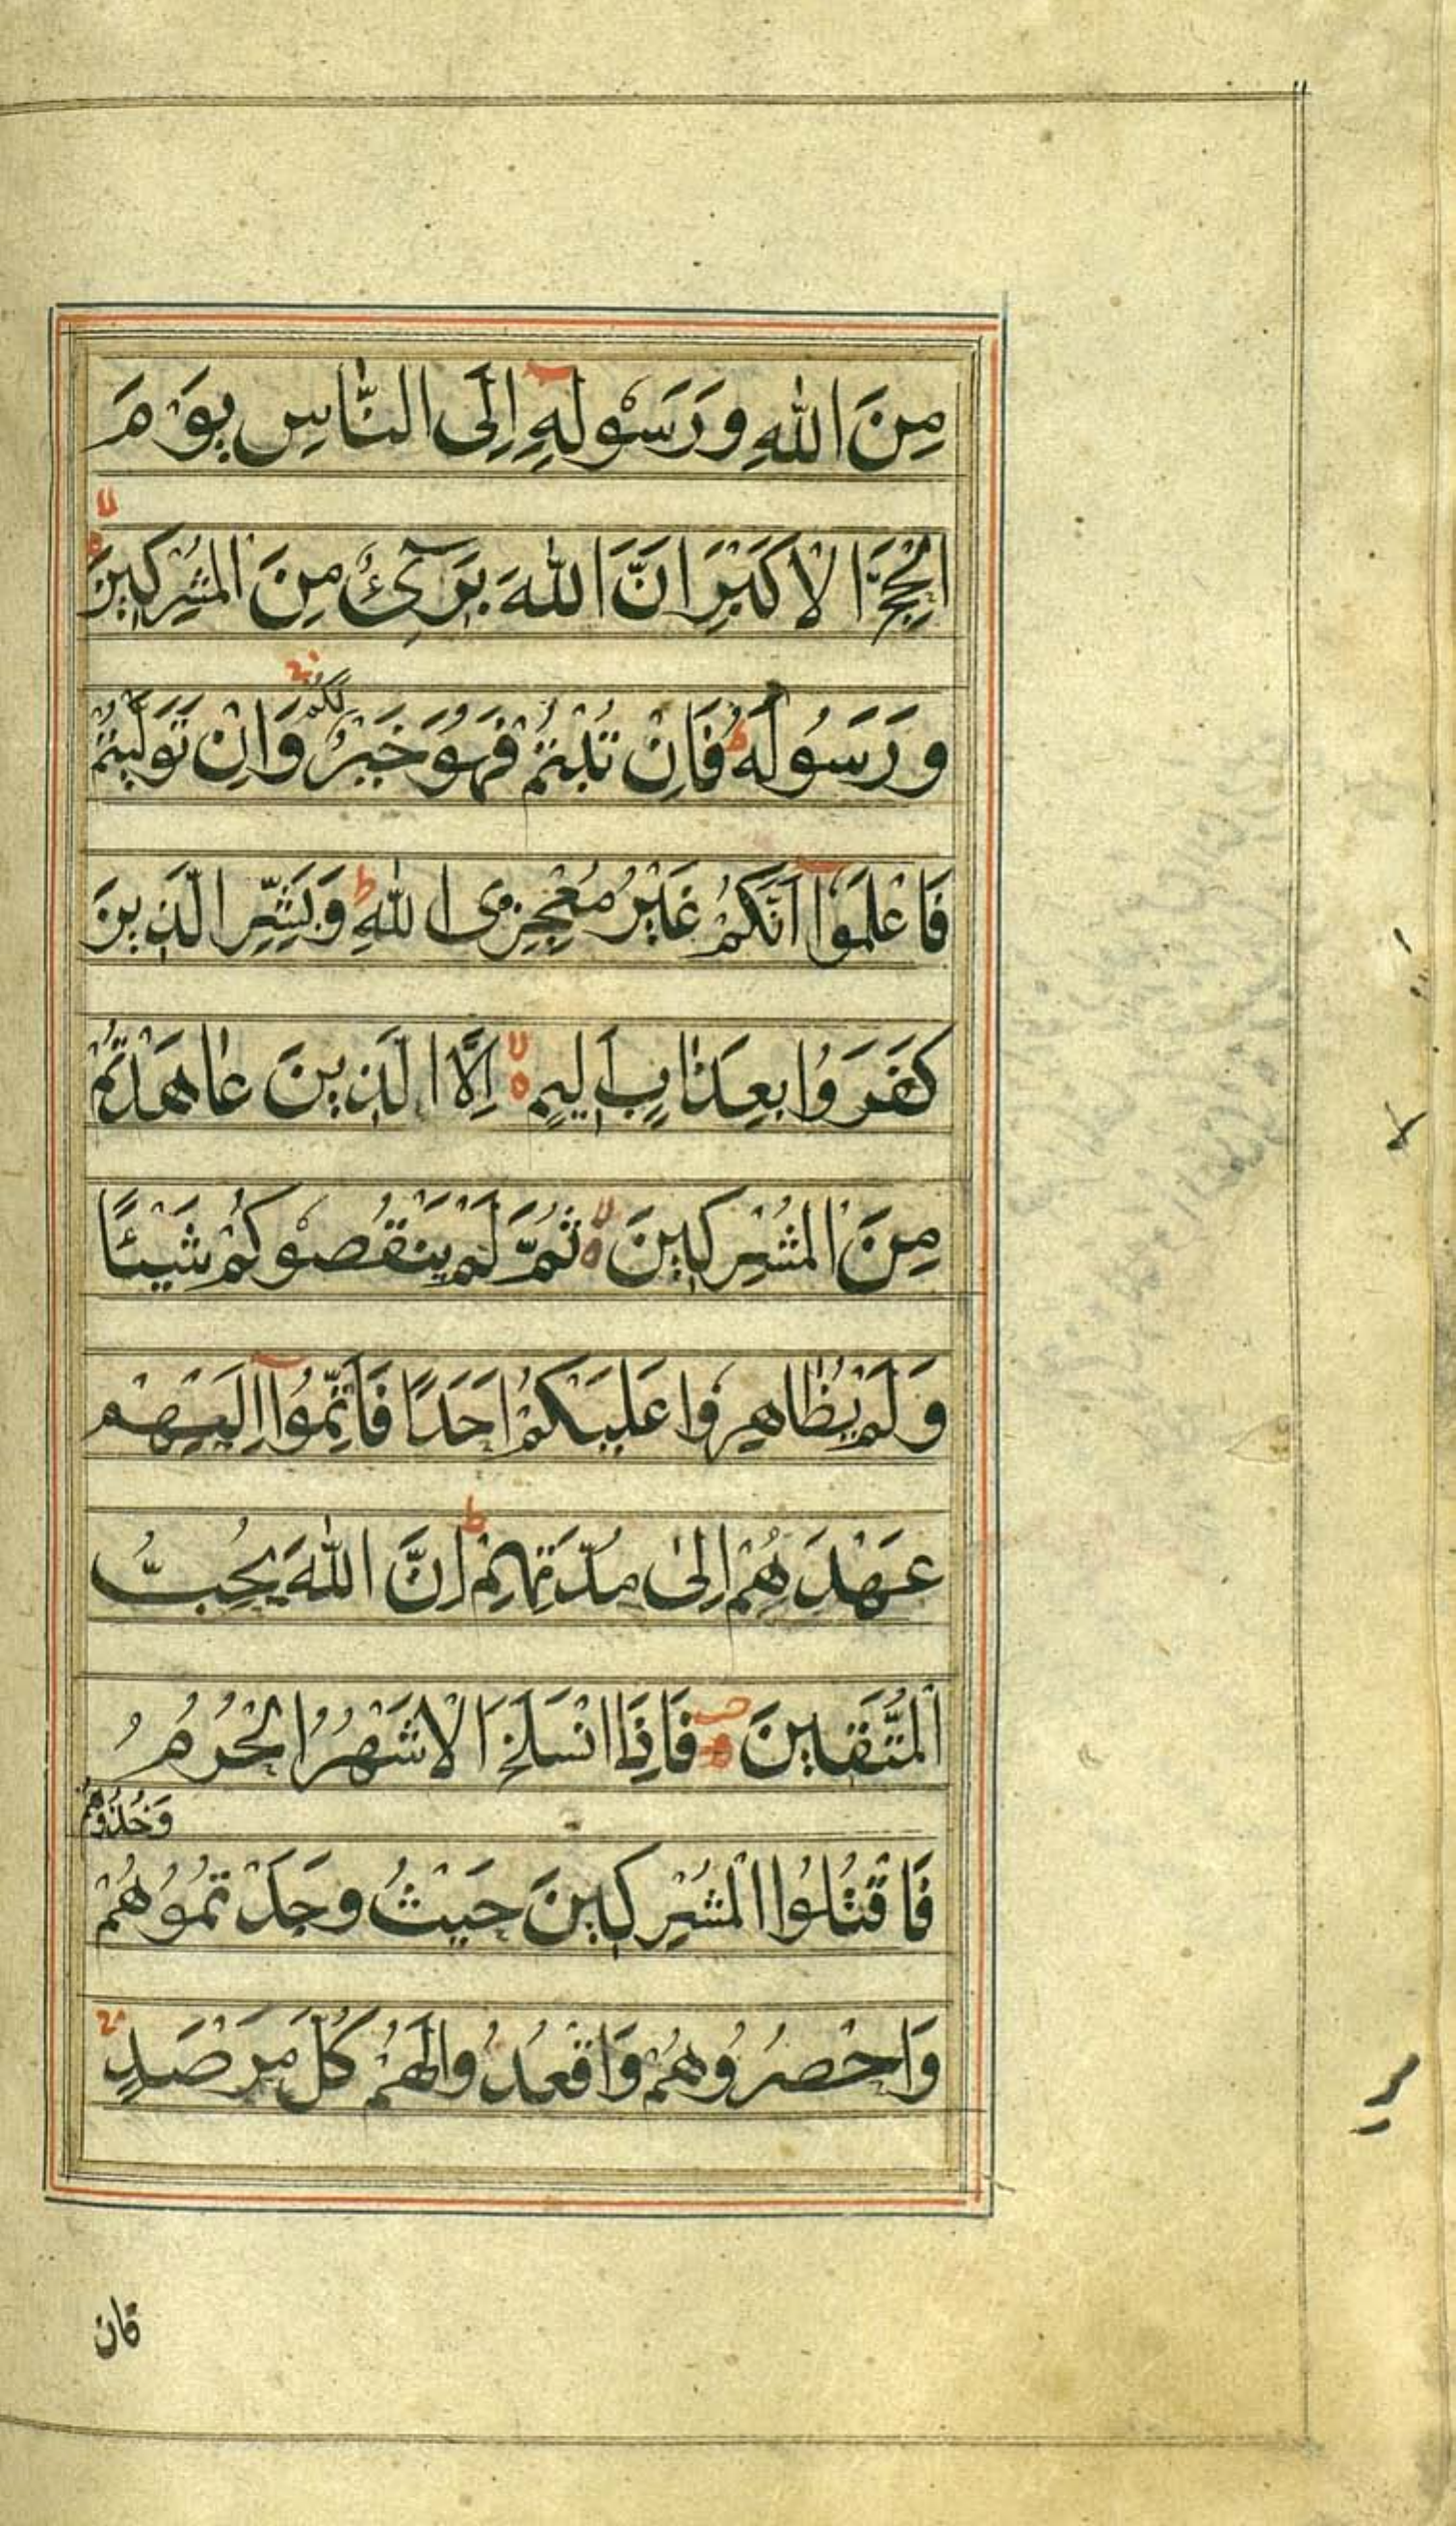 مِنَ اللّٰهِ وَرَسُوْلِهٖٓ اِلَى النَّاسِ يَوْمَ
الْحَجِّ الْاَكْبَرِ اَنَّ اللّٰهَ بَرِیْٓءٌ مِنَ الْمُشْرِكِيْنَ ۙ
وَرَسُوْلُهٗ ؕ فَاِنْ تُبْتُمْ فَهُوَ خَيْرٌ لَكُمْ ۚ وَاِنْ تَوَلَّيْتُمْ
فَاعْلَمُوْٓا اَنَّكُمْ غَيْرُ مُعْجِزِى اللّٰهِ ؕ وَبَشِّرِ الَّذِيْنَ
كَفَرُوْا بِعَذَابٍ اَلِيْمٍ ۙ اِلَّا الَّذِيْنَ عٰاهَدْتُمْ
مِنَ الْمُشْرِكِيْنَ ۙ ثُمَّ لَمْ يَنْقُصُوْكُمْ شَيْئًا
وَلَمْ يُظَاهِرُوْا عَلَيْكُمْ اَحَدًا فَاَتِمُّوْٓا اِلَيْهِمْ
عَهْدَهُمْ اِلٰى مُدَّتِهِمْ ؕ اِنَّ اللّٰهَ يُحِبُّ
الْمُتَّقِيْنَ فَاِذَا انْسَلَخَ الْاَشْهُرُ الْحُرُمُ
فَاقْتُلُوا الْمُشْرِكِيْنَ حَيْثُ وَجَدْتُمُوْهُمْ وَخُذُوْهُمْ
وَاحْصُرُوْهُمْ وَاقْعُدُوْا لَهُمْ كُلَّ مَرْصَدٍ ۚ
فان